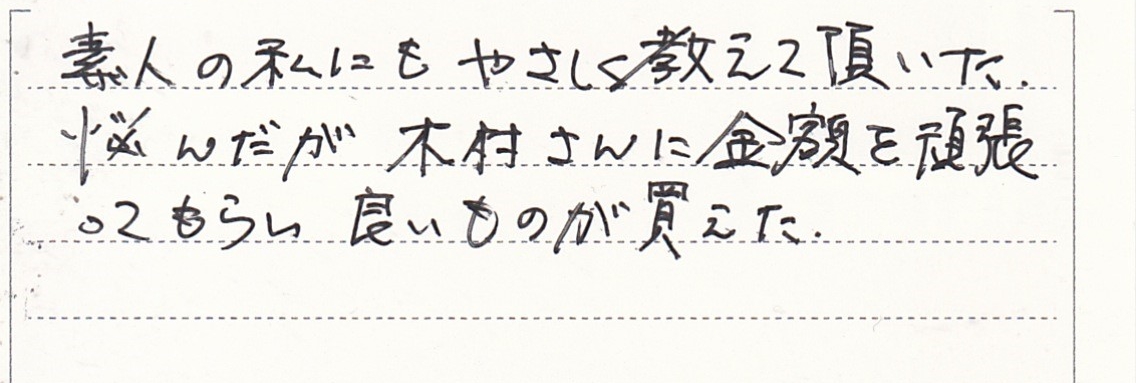 素人の私にもやさしく教えて頂いた.
悩んだが 木村さんに金額を頑張
ってもらい 良いものが買えた.